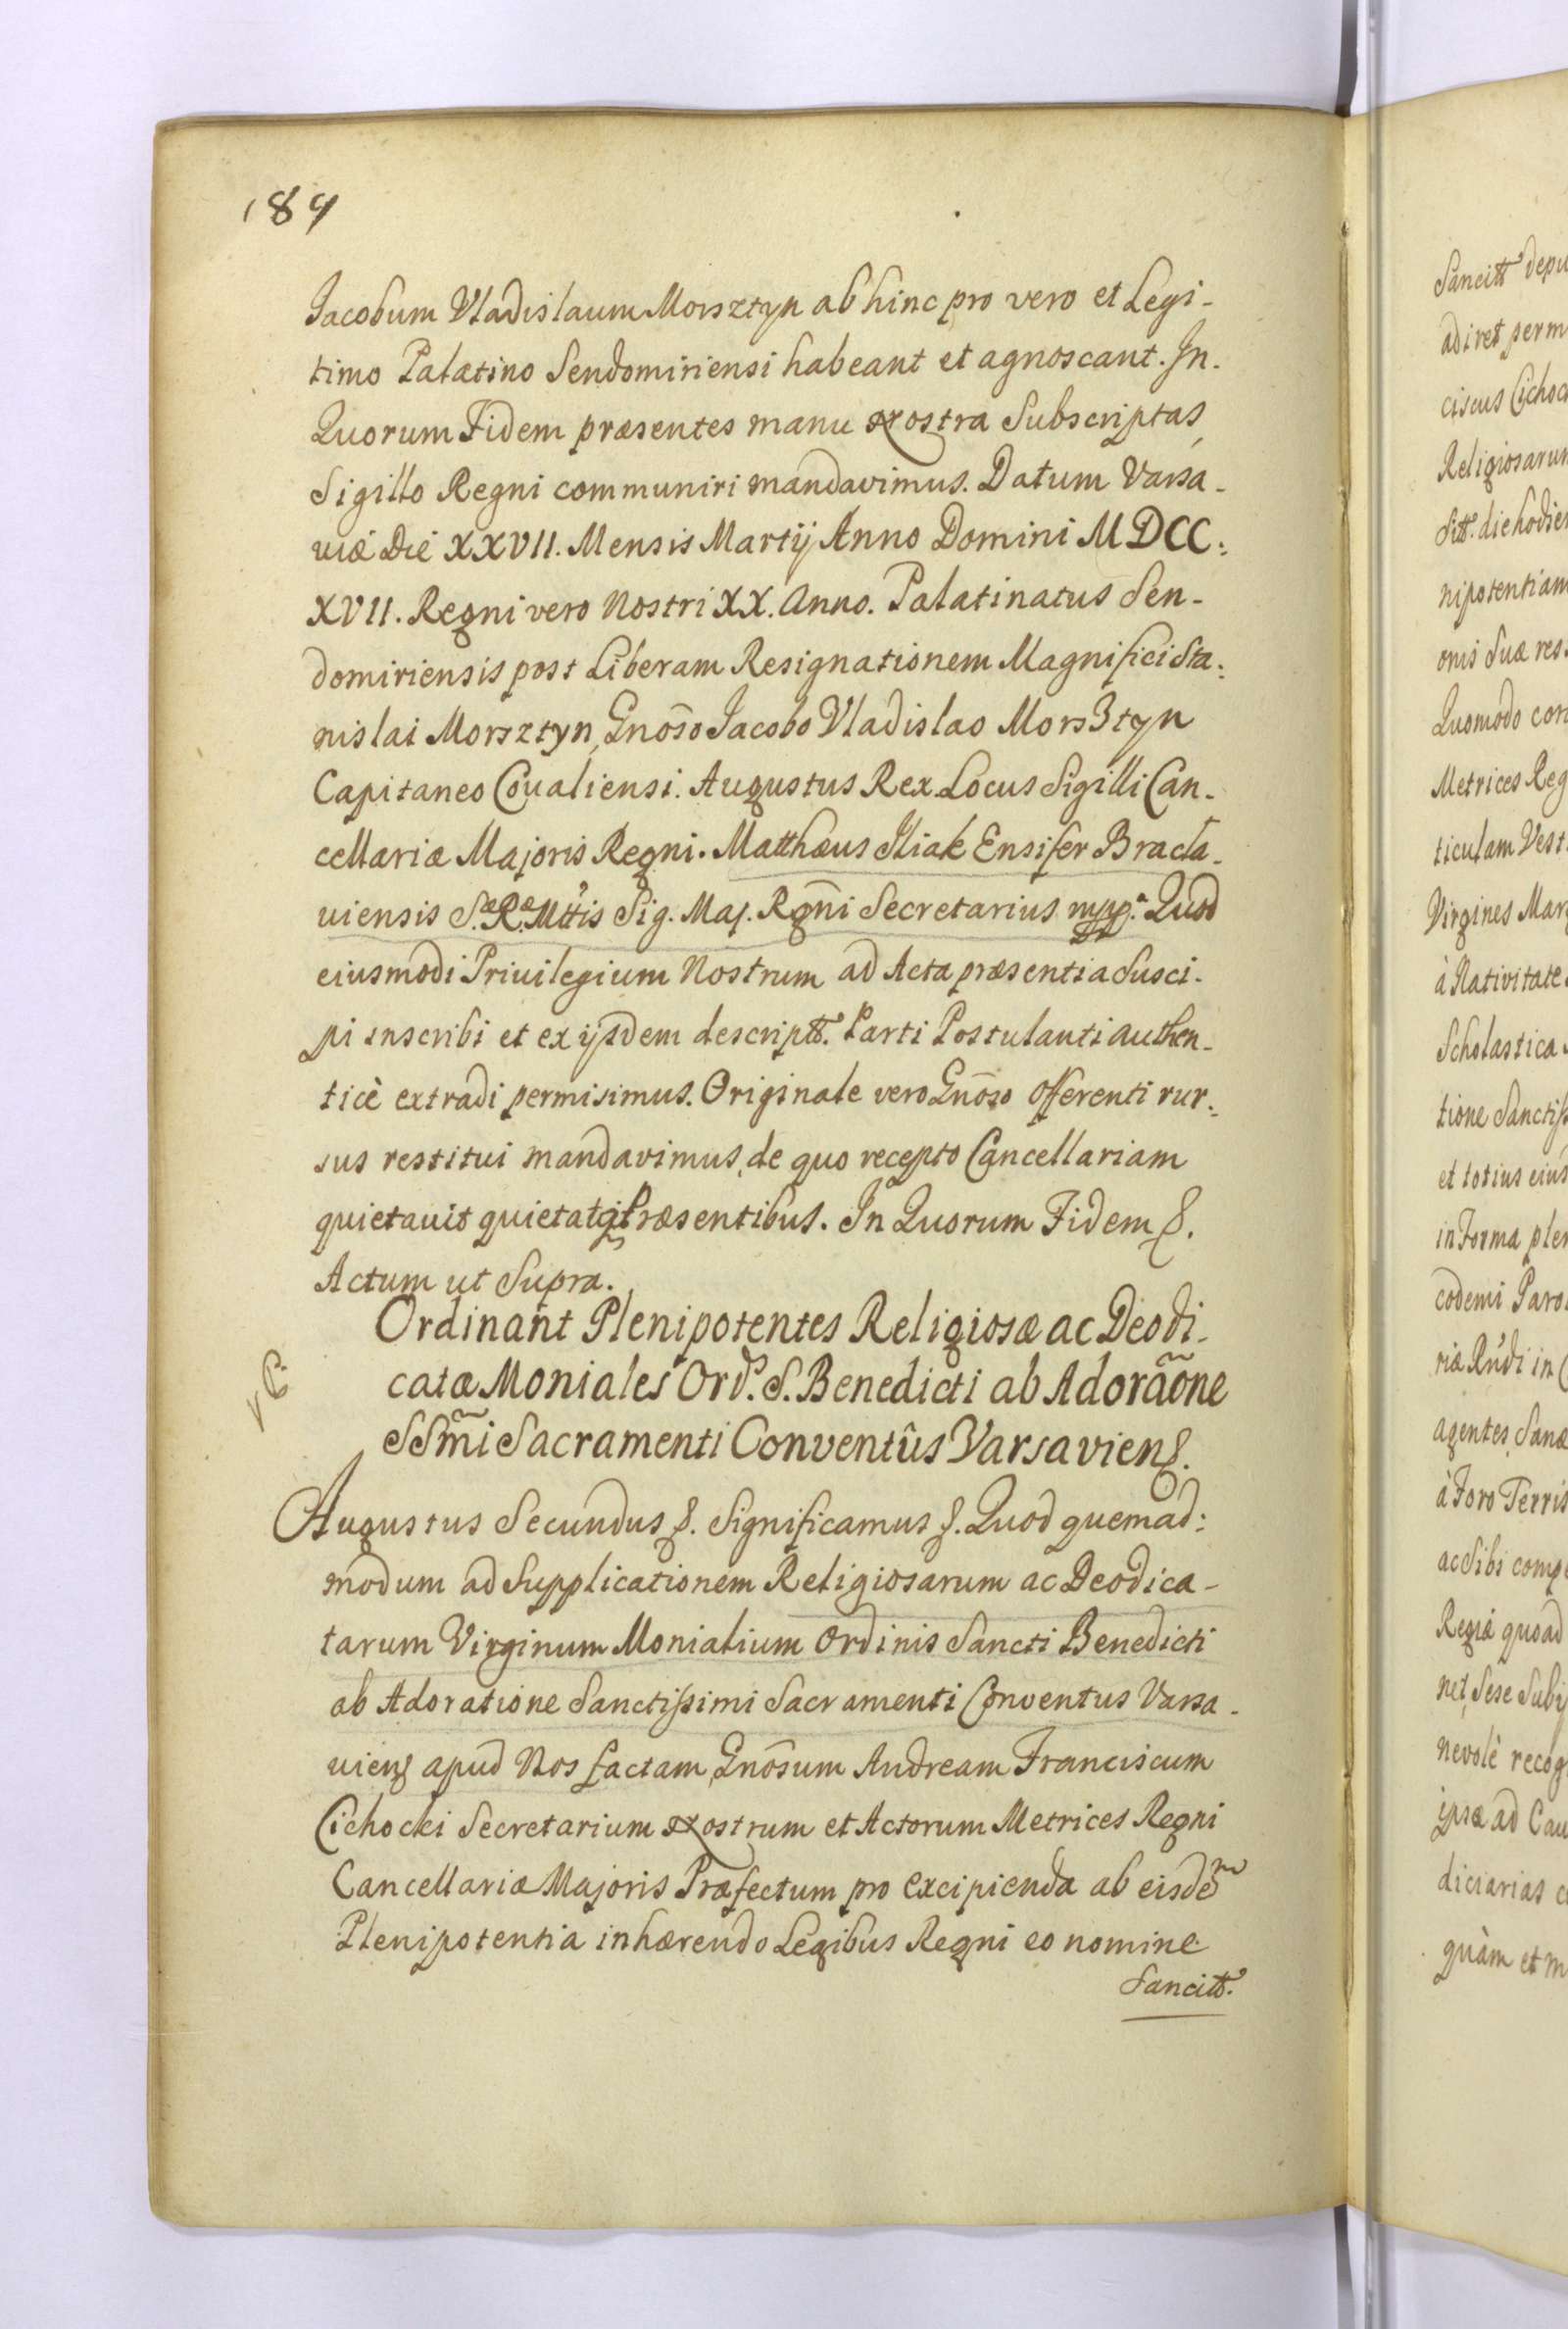 184
Jacobum Vladislaum Morsztyn abhinc pro vero et Legi-
timo Palatino Sendomiriensi habeant et agnoscant. In.
Quorum Fidem præsentes manu Nostra Subscriptas,
Sigillo Regni communiri mandavimus. Datum Varsa-
viæ Die XXVII. Mensis Martij Anno Domini MDCC:
XVII. Regni vero Nostri XX. Anno. Palatinatus Sen-
domiriensis post Liberam Resignationem Magnifici Sta:
nislai Morsztyn, Gnõso Jacobo Vladislao Morsztyn
Capitaneo Covaliensi. Augustus Rex Locus Sigilli Can-
cellariæ Majoris Regni. Matthæus Iliak Ensifer Bracla-
viensis S.æ R.æ Mttis Sig. Maj. Rgñi Secretarius mpp. Quod
eiusmodi Privilegium Nostrum ad Acta præsentia Susci-
pi inscribi et ex ijsdem descriptt. Parti Postulanti authen-
ticè extradi permisimus. Originale vero Gnõso Offerenti rur:
sus restitui mandavimus, de quo recepto Cancellariam
quietavit quietatq Præsentibus. In Quorum Fidem &.
Actum ut Supra.
Ordinant Plenipotentes Religiosæ ac Deodi-
catæ Moniales Ord. S. Benedicti ab Adorãone
SSm̃i Sacramenti Conventûs Varsaviens.
Augustus Secundus &. Significamus &. Quod quemad:
modum ad Supplicationem Religiosarum ac Deodica-
tarum Virginum Monialium Ordinis Sancti Benedicti
ab Adoratione Sanctissimi Sacramenti Conventus Varsa-
viens apud Nos factam, Gnõsum Andream Franciscum
Cichocki Secretarium Nostrum et Actorum Metrices Regni
Cancellariæ Majoris Præfectum pro excipienda ab eisdem
Plenipotentia inhærendo Legibus Regni eo nomine
Sancitt.
Sancitt depu
adiret perm
ciscus Cichoc
Religiosarum
Sitt. die hodier
nipotentiam
onis Suæ res
Quomodo cor
Metrices Reg
ticulam Vest
Virgines Marg
à Nativitate
Scholastica
tione Sanctiss
et totius eius
in Forma plen
codemi Paro
riæ Rudi in
agentes, Sanæ
à Foro Terris
ac Sibi comp
Regiæ quoad
net, Sese Subij
nevolè recog
ipsæ ad Cau
diciarias c
quàm et m